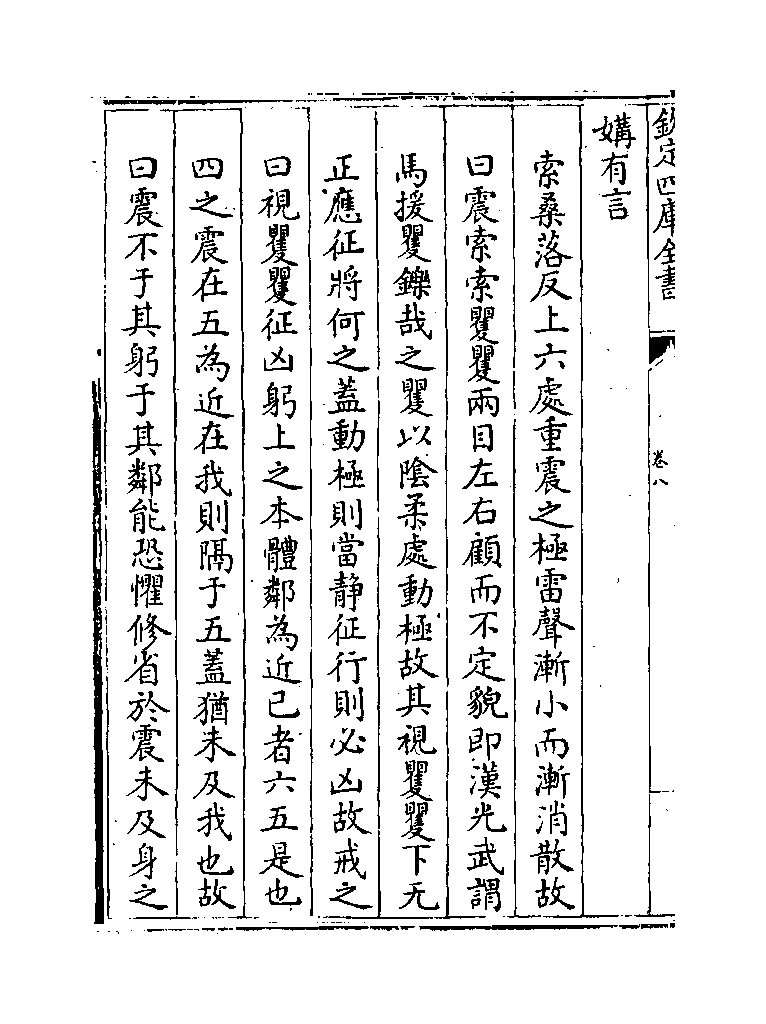 欽定四庫全書
卷八
媾有言
索桑落反上六處重震之極雷聲漸小而漸消散故
曰震索索矍矍兩目左右顧而不定貌即漢光武謂
馬援矍鑠哉之矍以陰柔處動極故其視矍矍下无
正應征將何之蓋動極則當静征行則必凶故戒之
曰視矍矍征凶躬上之本體鄰為近己者六五是也
四之震在五為近在我則隔于五蓋猶未及我也故
曰震不于其躬于其鄰能恐懼修省於震未及身之